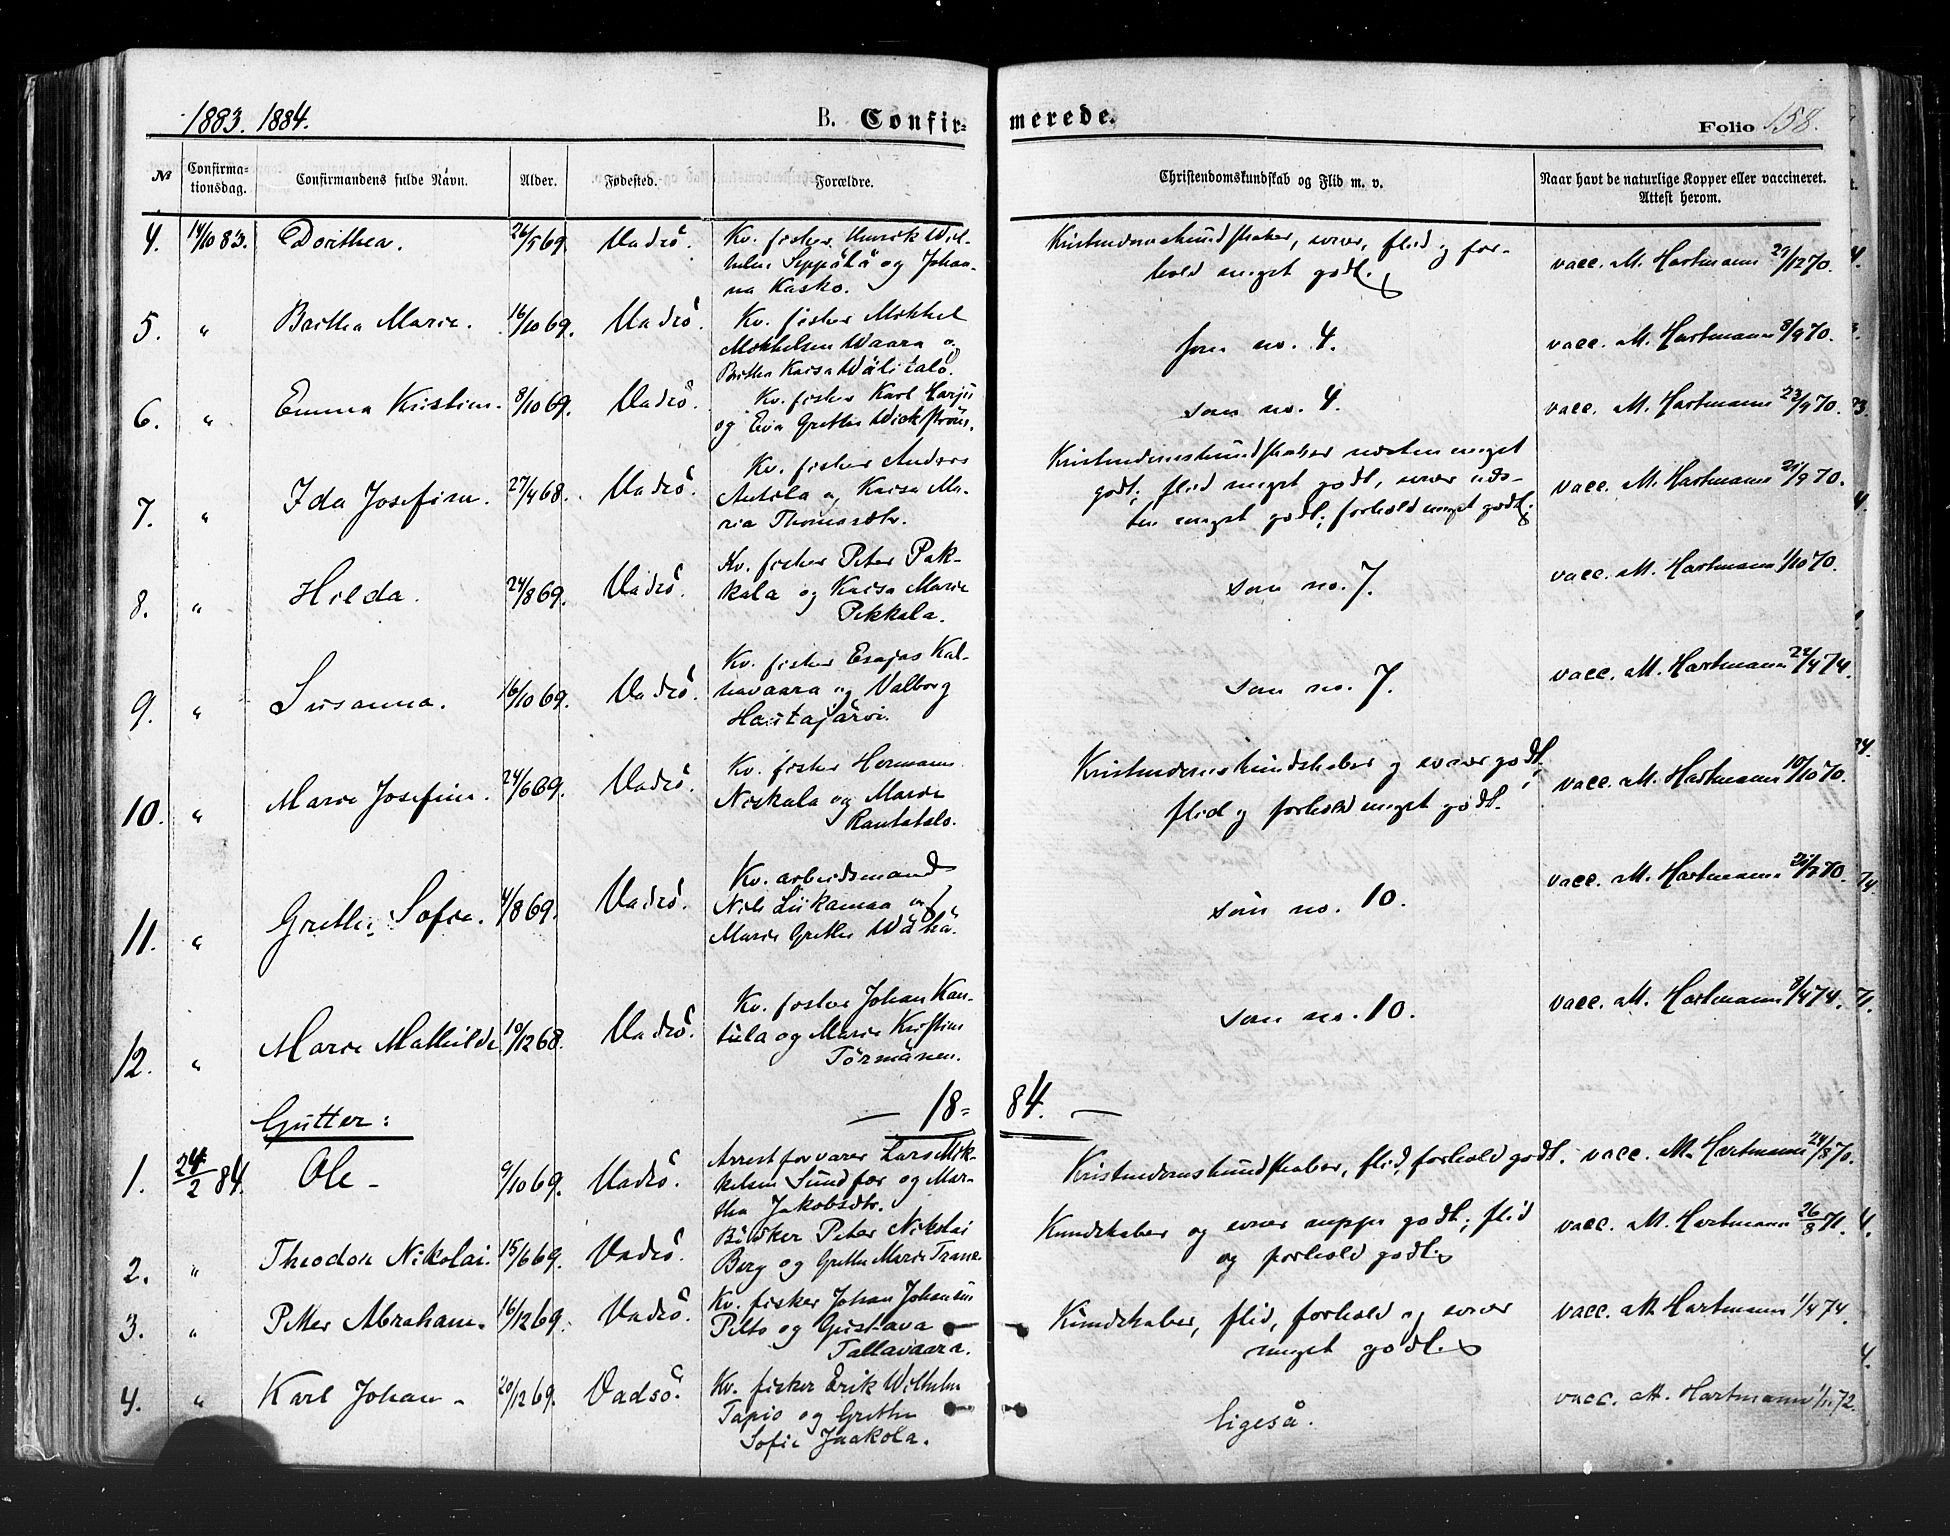 1883. 1884. B. Confir- merede. Folio 158.
№ Confirma- tionsdag. Confirmandens fulde Navn. Alder. Fødested. Forældre. Christendomskundskab og Flid m. v. Naar havt de naturlige Kopper eller vaccineret. Attest herom.
4. 14/10 83. Dorthea. 26/5 69. Vadsö. Kv. fisker Henrik Wil-
helm Seppälä og Johan-
na Kasko.
Kristendomskundskaber, svar, flid og for-
hold meget godt.
vacc. M. Hartmann 29/12 70.
5. " Britha Marie. 16/10 69. Vadsö. Kv. fisker Mikkel
Mikkelsen Waara og
Britha Kaisa Wälitalo.
som no. 4.
vacc. M. Hartmann 8/9 70.
6. " Emma Kristine. 8/10 69. Vadsö. Kv. fisker Karl Harju
og Eva Grethe Wickström.
som no. 4.
vacc. M. Hartmann 22/9 70.
7. " Ida Josefine. 27/4 68. Vadsö. Kv. fisker Anders
Antila og Kaisa Ma-
ria Thomasdtr.
Kristendomskundskaber næsten meget
godt; flid meget godt, svar næs-
ten meget godt; forhold meget godt;
vacc. M. Hartmann 21/9 70.
8. " Hilda. 24/8 69. Vadsö. Kv. fisker Peter Pak-
kala og Kaisa Marie
Pekkala.
som no. 7.
vacc. M. Hartmann 1/10 70.
9. " Susanna. 16/10 69. Vadsö. Kv. fisker Esajas Kal-
havaara og Valborg
Hautajärvi.
som no. 7.
vacc. M. Hartmann 22/4 74.
10. " Marie Josefine. 24/6 69. Vadsö. Kv. fisker Hermann
Niskala og Marie
Rantatalo.
Kristendomskundskaber og svar godt,
flid og forhold meget godt.
vacc. M. Hartmann 10/10 70.
11. " Grethe Sofie. 4/8 69. Vadsö. Kv. arbeidsmand
Nils Liikamaa og
Marie Grethe Wähä.
som no. 10.
vacc. M. Hartmann 21/2 70.
12. " Marie Mathilde 10/12 68. Vadsö. Kv. fisker Johan Kan-
tula og Marie Kristine
Törmänen.
som no. 10.
vacc. M. Hartmann 8/4 74.
Gutter: — 18= 84. —
1. 24/2 84. Ole - 9/10 69. Vadsö. Arrestforvarer Lars Mik-
kelsen Sundfær og Mar-
tha Jakobsdtr.
Kristendomskundskaber, flid, forhold godt. vacc. M. Hartmann 24/8 70.
2. " Theodor Nikolai. 15/6 69. Vadsö. Bödker Peter Nikolai
Berg og Grethe Marie Trane
Kundskaber og svar neppe godt; flid
og forhold godt.
vacc. M. Hartmann 26/8 71.
3. " Petter Abraham. 16/12 69. Vadsö. Kv. fisker Johan Johansen
Pelto og Gustava
Tallavaara.
Kundskaber, flid, forhold og svar
meget godt.
vacc. M. Hartmann 1/4 74.
4. " Karl Johan - 20/12 69. Vadsö. Kv. fisker Erik Wilhelm
Tapio og Grethe
Sofie Jaakola.
ligeså.
vacc. M. Hartmann 1/11 72.